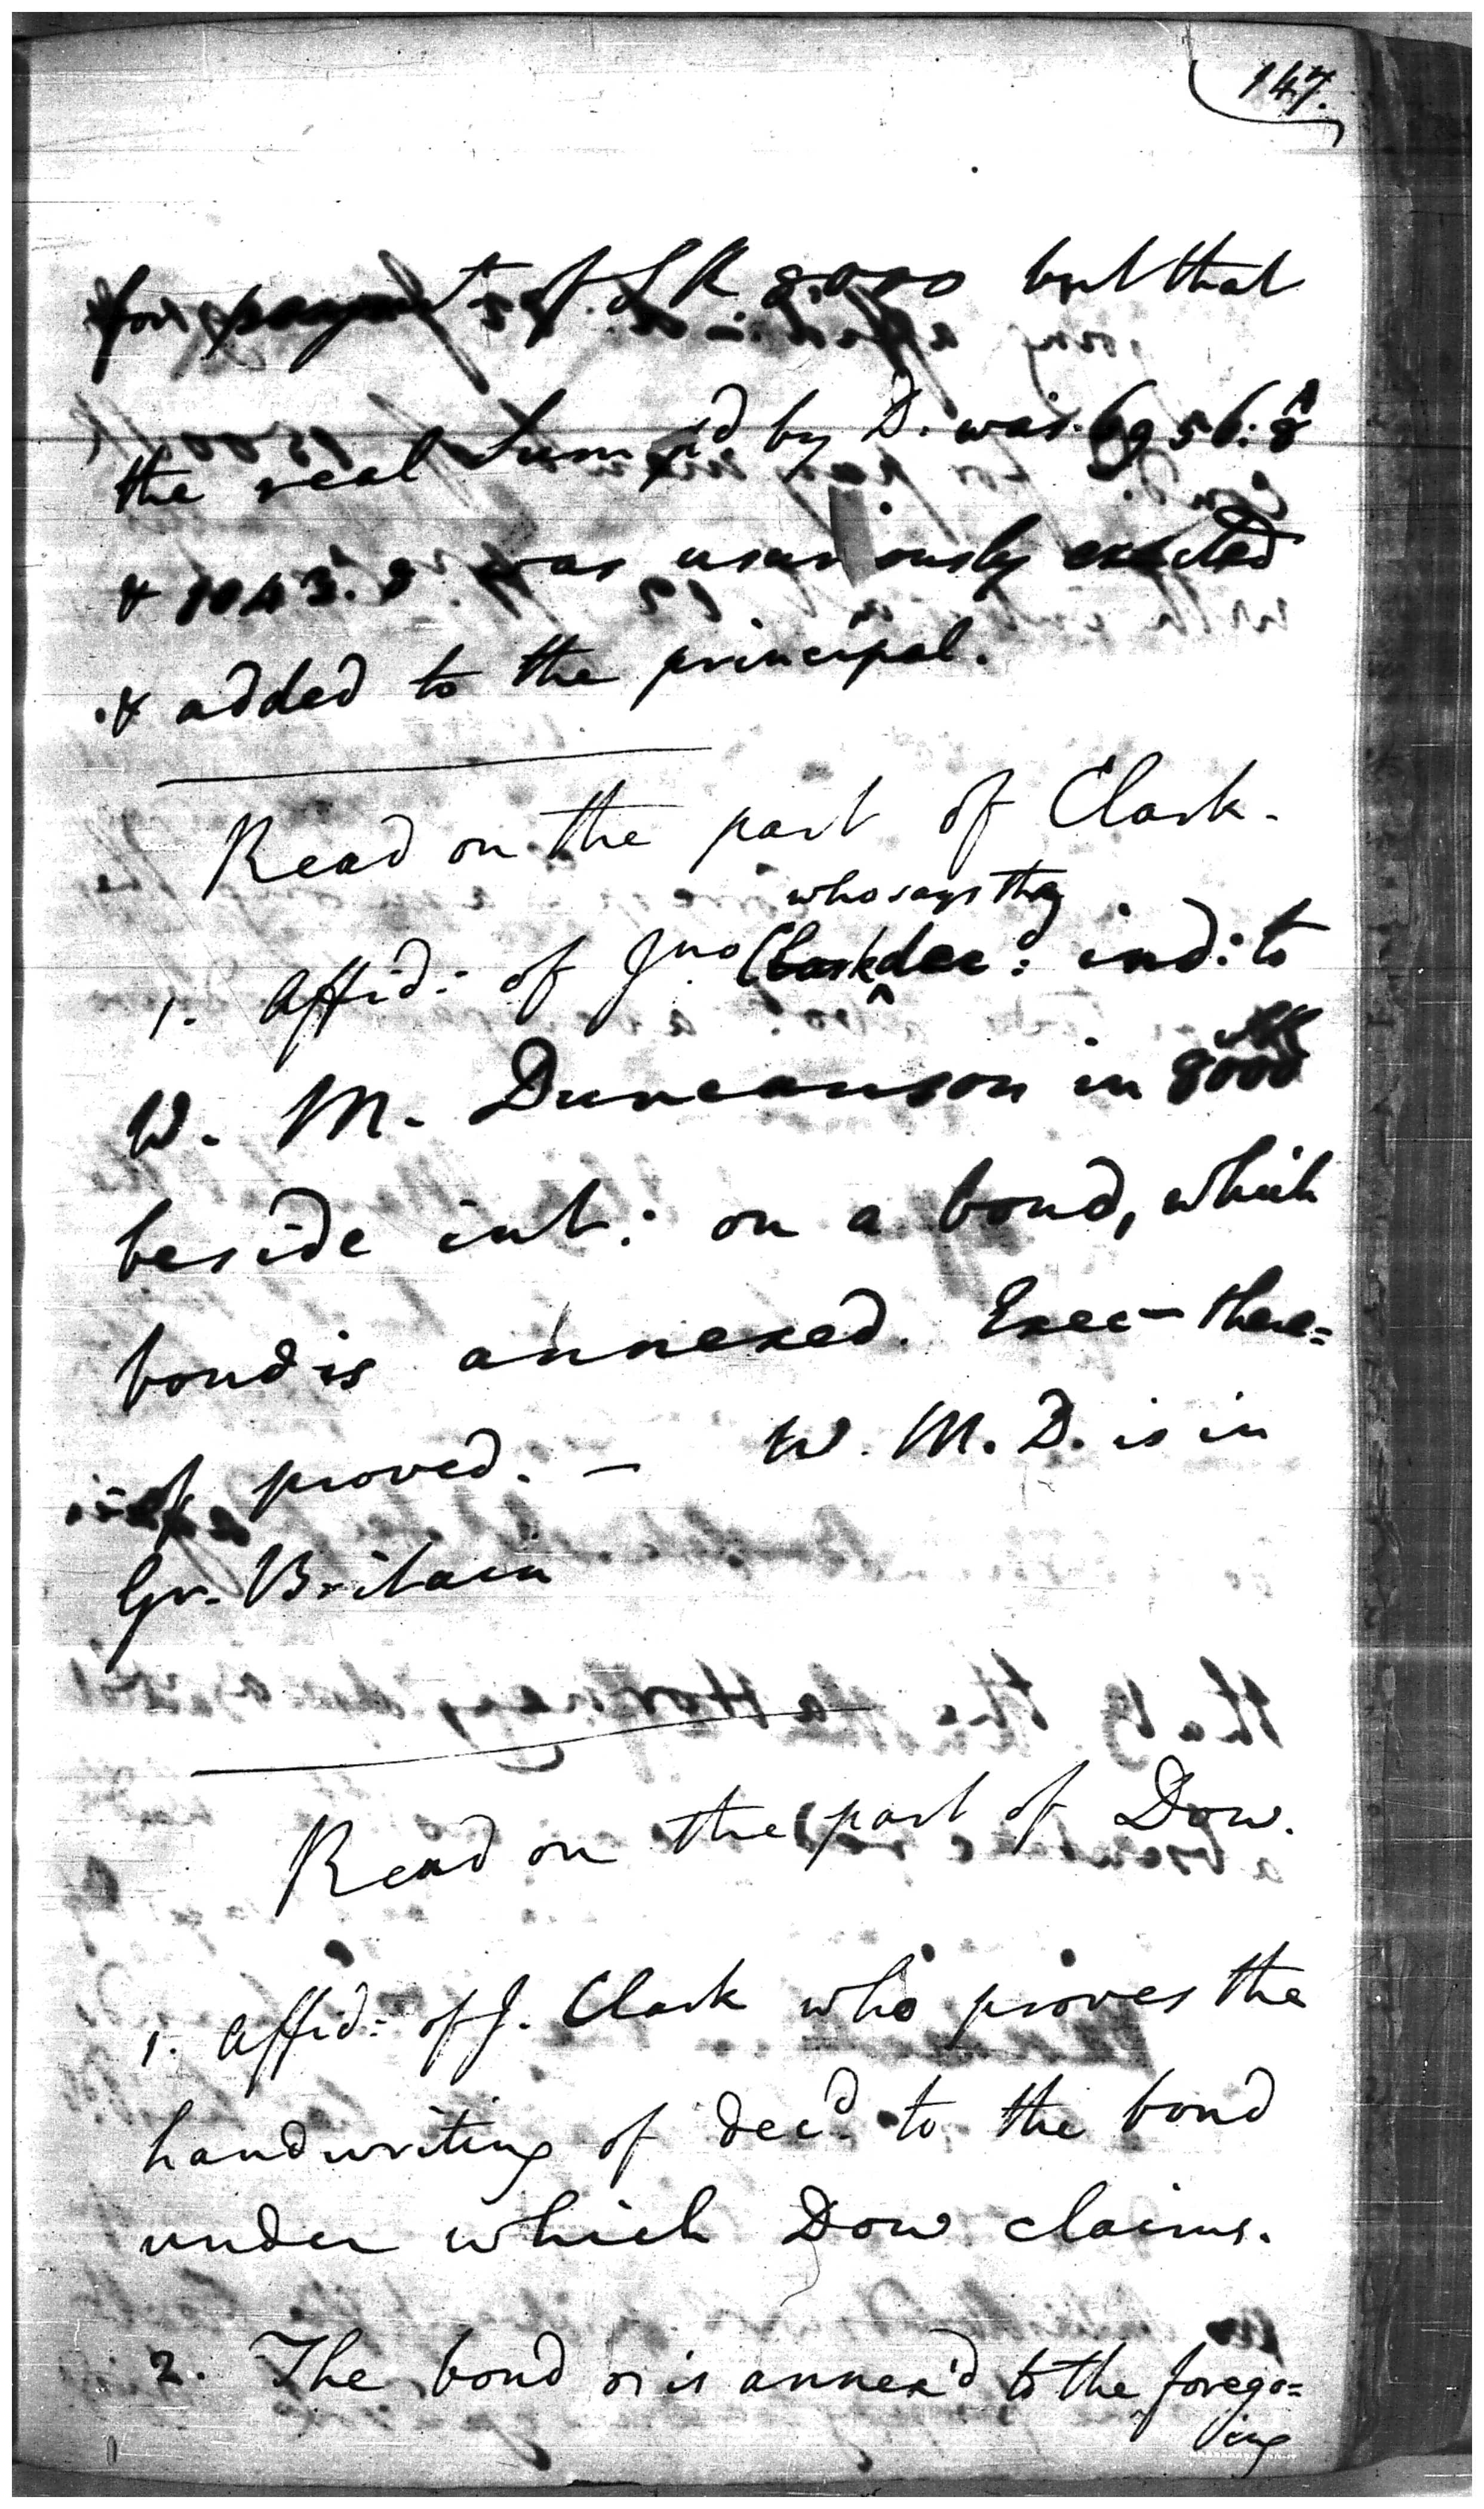 147.
for paym^t of S R 8.000 but that
the real Sum p^d by D. was. 6956:8
& 1043.8 was usuriously exacted
& added to the principal.
Read on the part of Clark.
who says the
1. Affid: of Jno Clark dec:^d ind: to
W. M. Duncanson in 8000
beside int: on a bond, which
bond is annexed. Exec– there=
of proved. – W. M. D. is in
Gr. Britain
Read on the part of Dow.
1. Affid: of J. Clark who proves the
handwriting of dec^d. to the bond
under which Dow claims.
2. The bond is annex'd to the forego=
ing